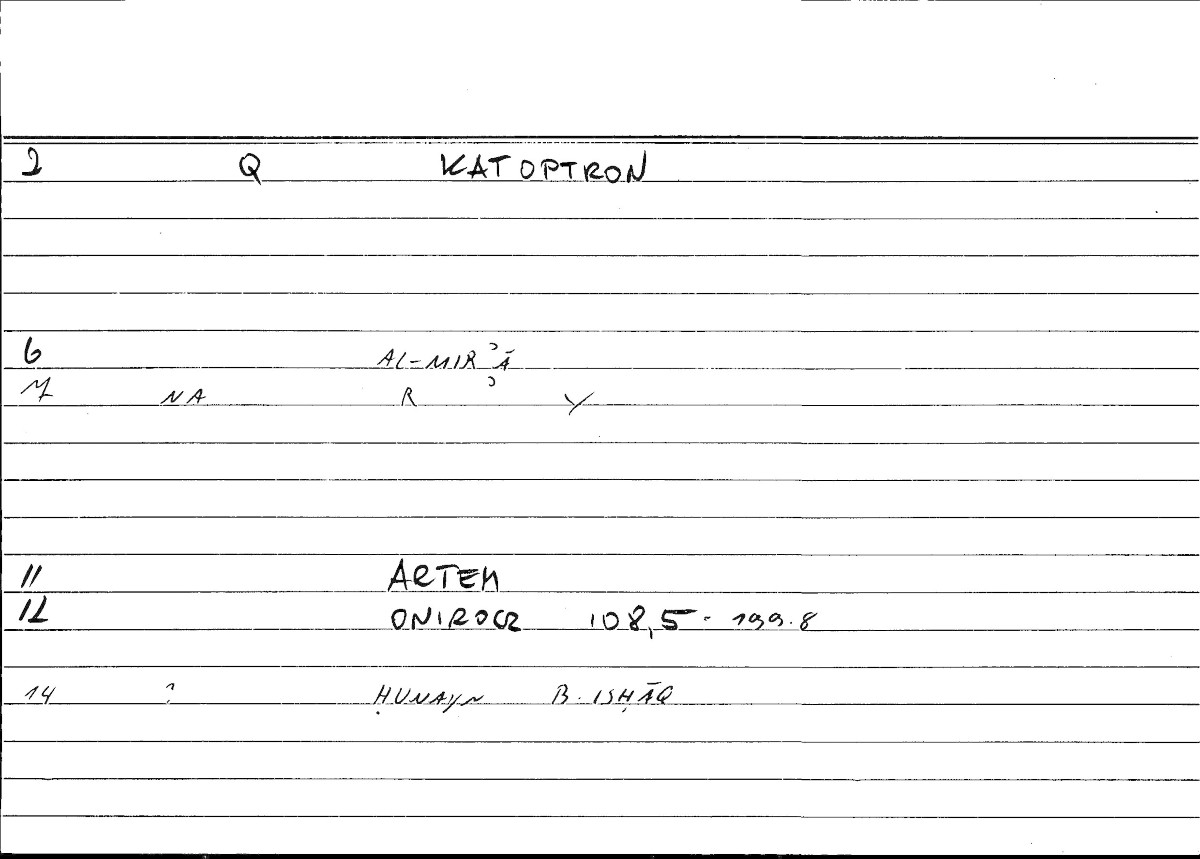 2 Q KATOPTRON
6 AL-MIRʾĀ
7 NA R ʾ Y
11 ARTEM
12 ONIROCR 108,5 - 199.8
14 ? ḤUNAYN B. ISḤĀQ